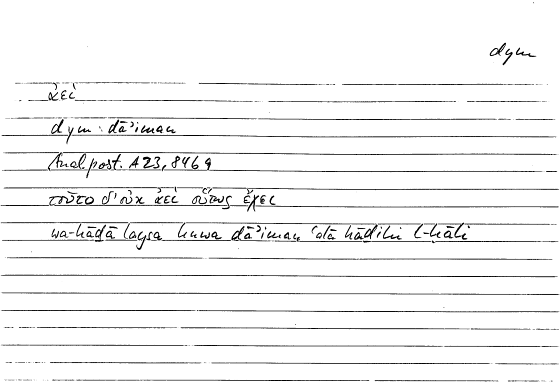 dym
ἀεί
dym : dāʾiman
Anal. post. A 23, 84b9
τοῦτο δ' οὐκ ἀεὶ οὕτως ἔχει
wa-hāḏā laysa huwa dāʾiman ʿalā hāḏihi l-ḥāli